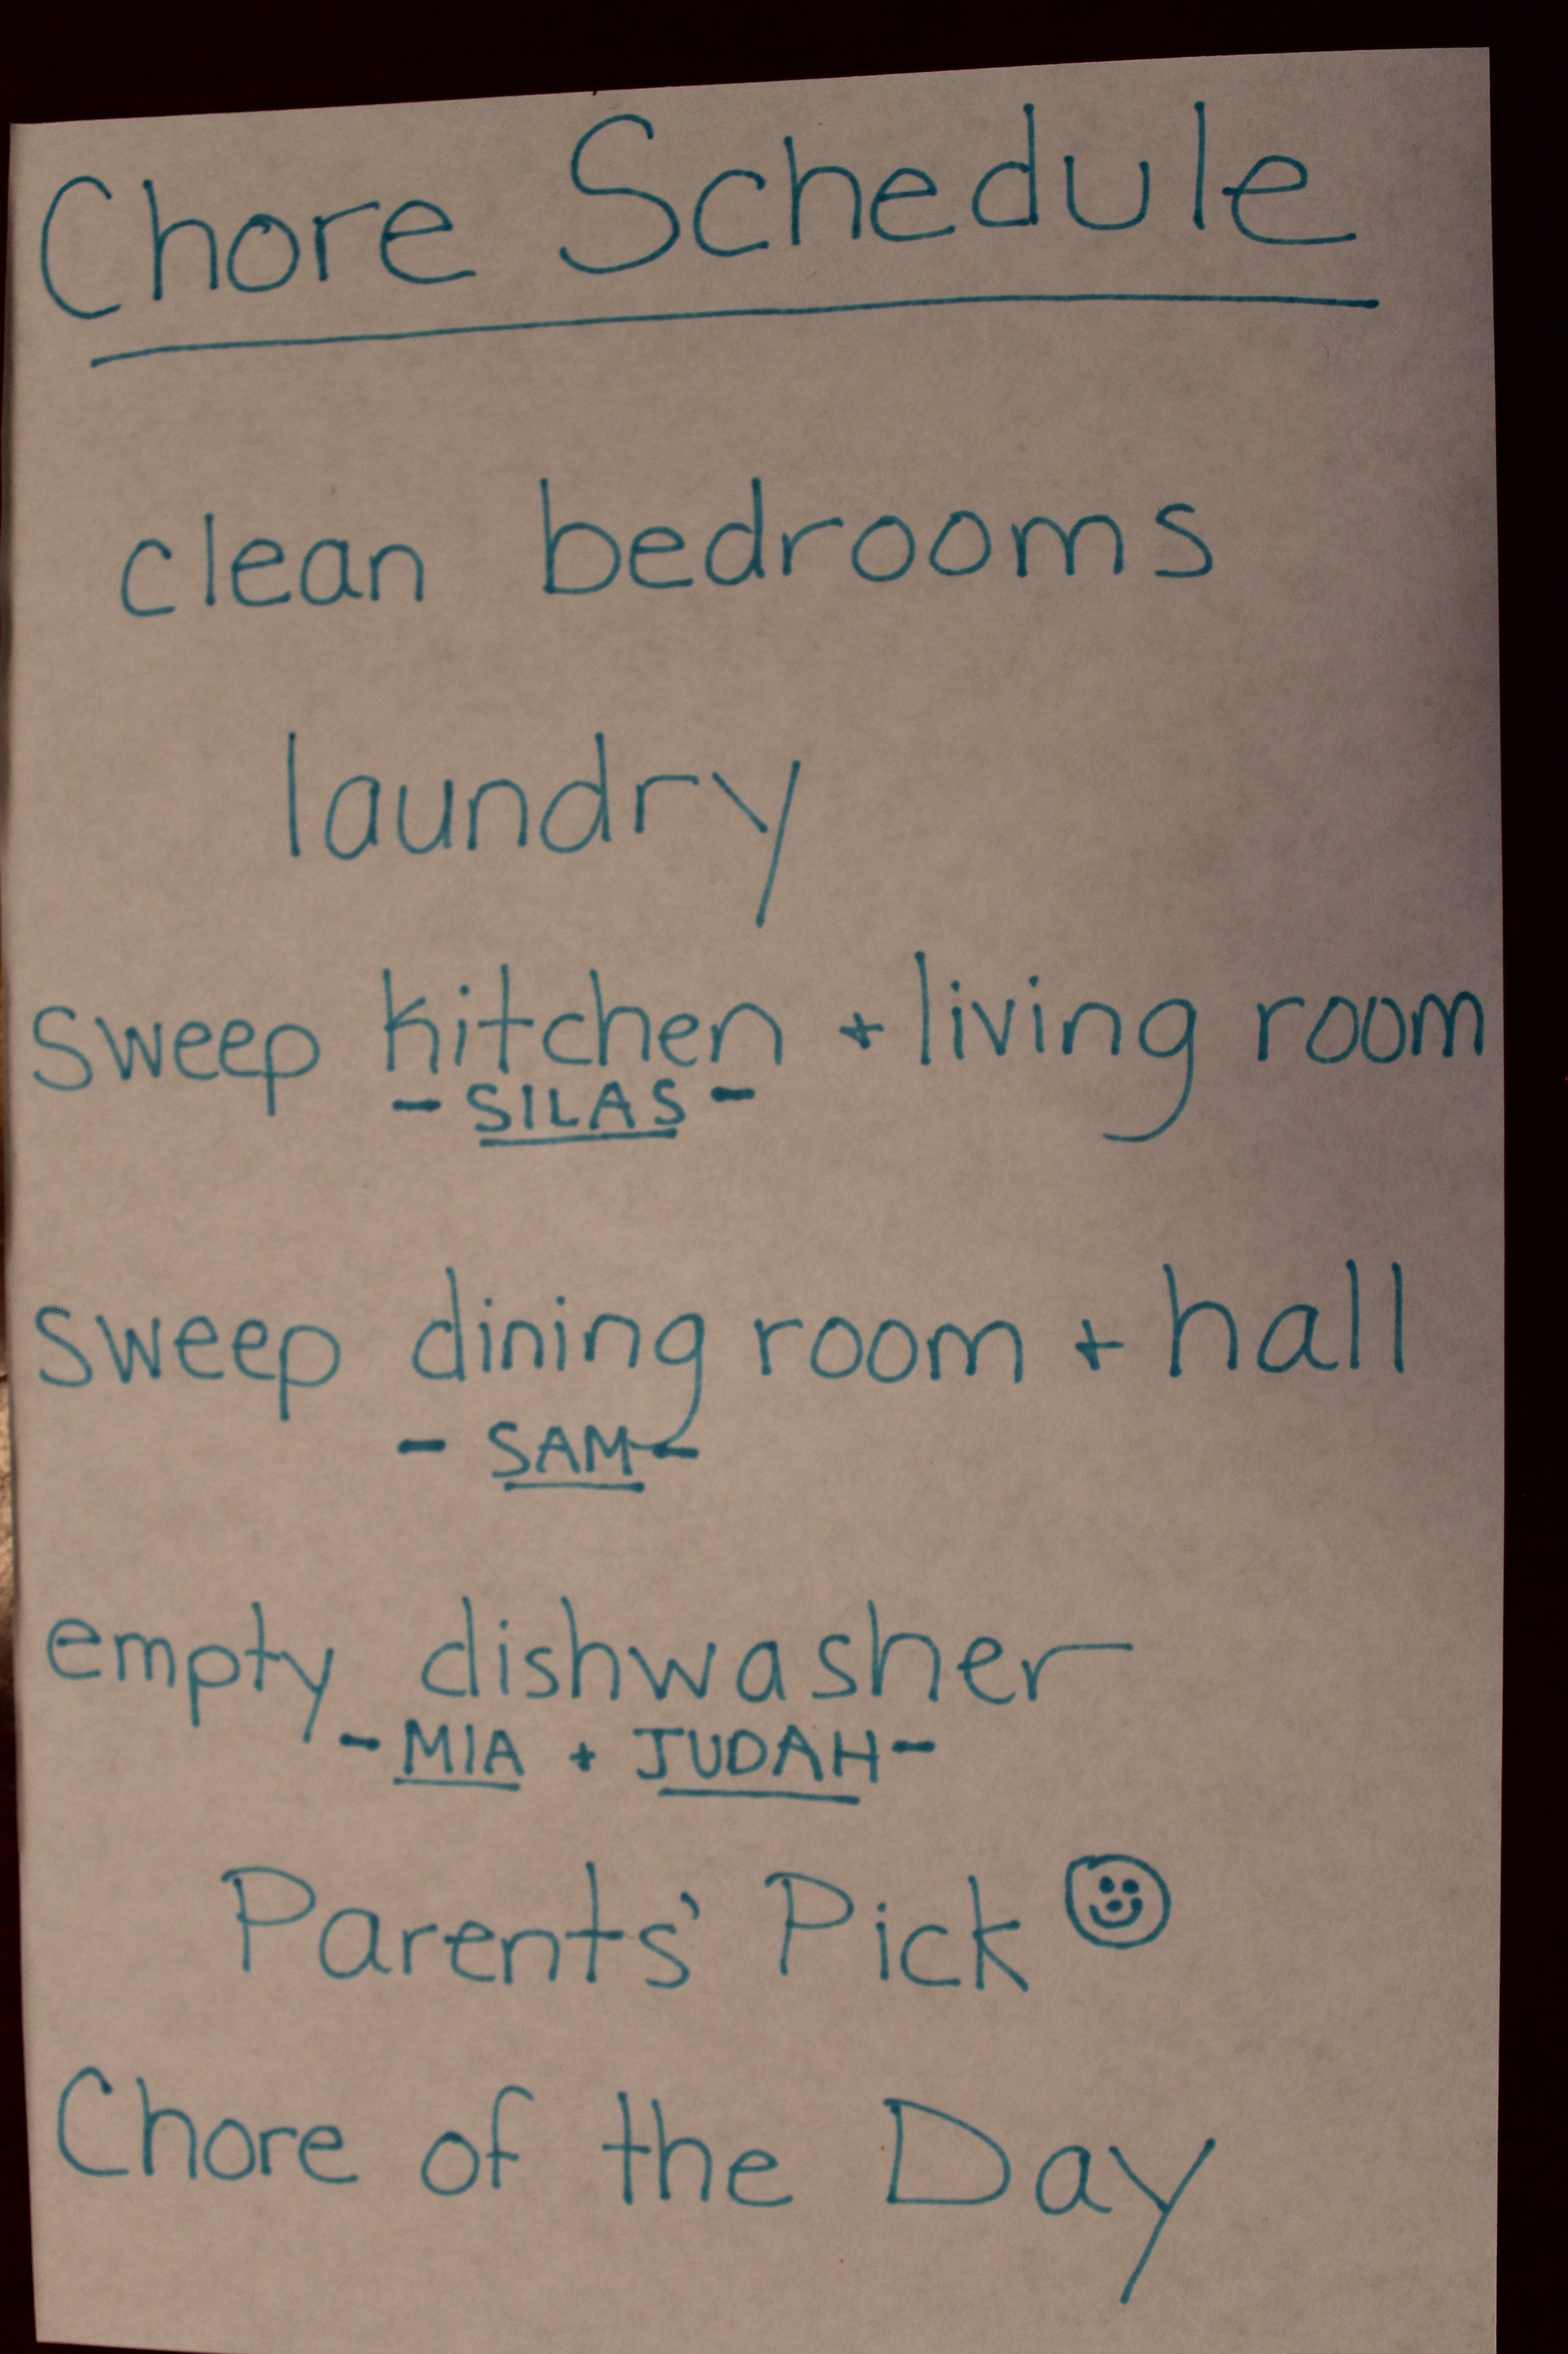 Chore Schedule
clean bedrooms
laundry
sweep kitchen + living room
- SILAS -
sweep dining room + hall
- SAM -
empty dishwasher
- MIA + JUDAH -
Parents' Pick
Chore of the Day